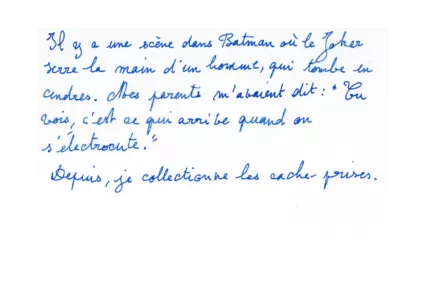 Il y a une scène dans Batman où le Joker
serre la main d'un homme, qui tombe en
cendres. Mes parents m'avaient dit : "Tu
vois, c'est ce qui arrive quand on
s'électrocute."
Depuis, je collectionne les cache-prises.